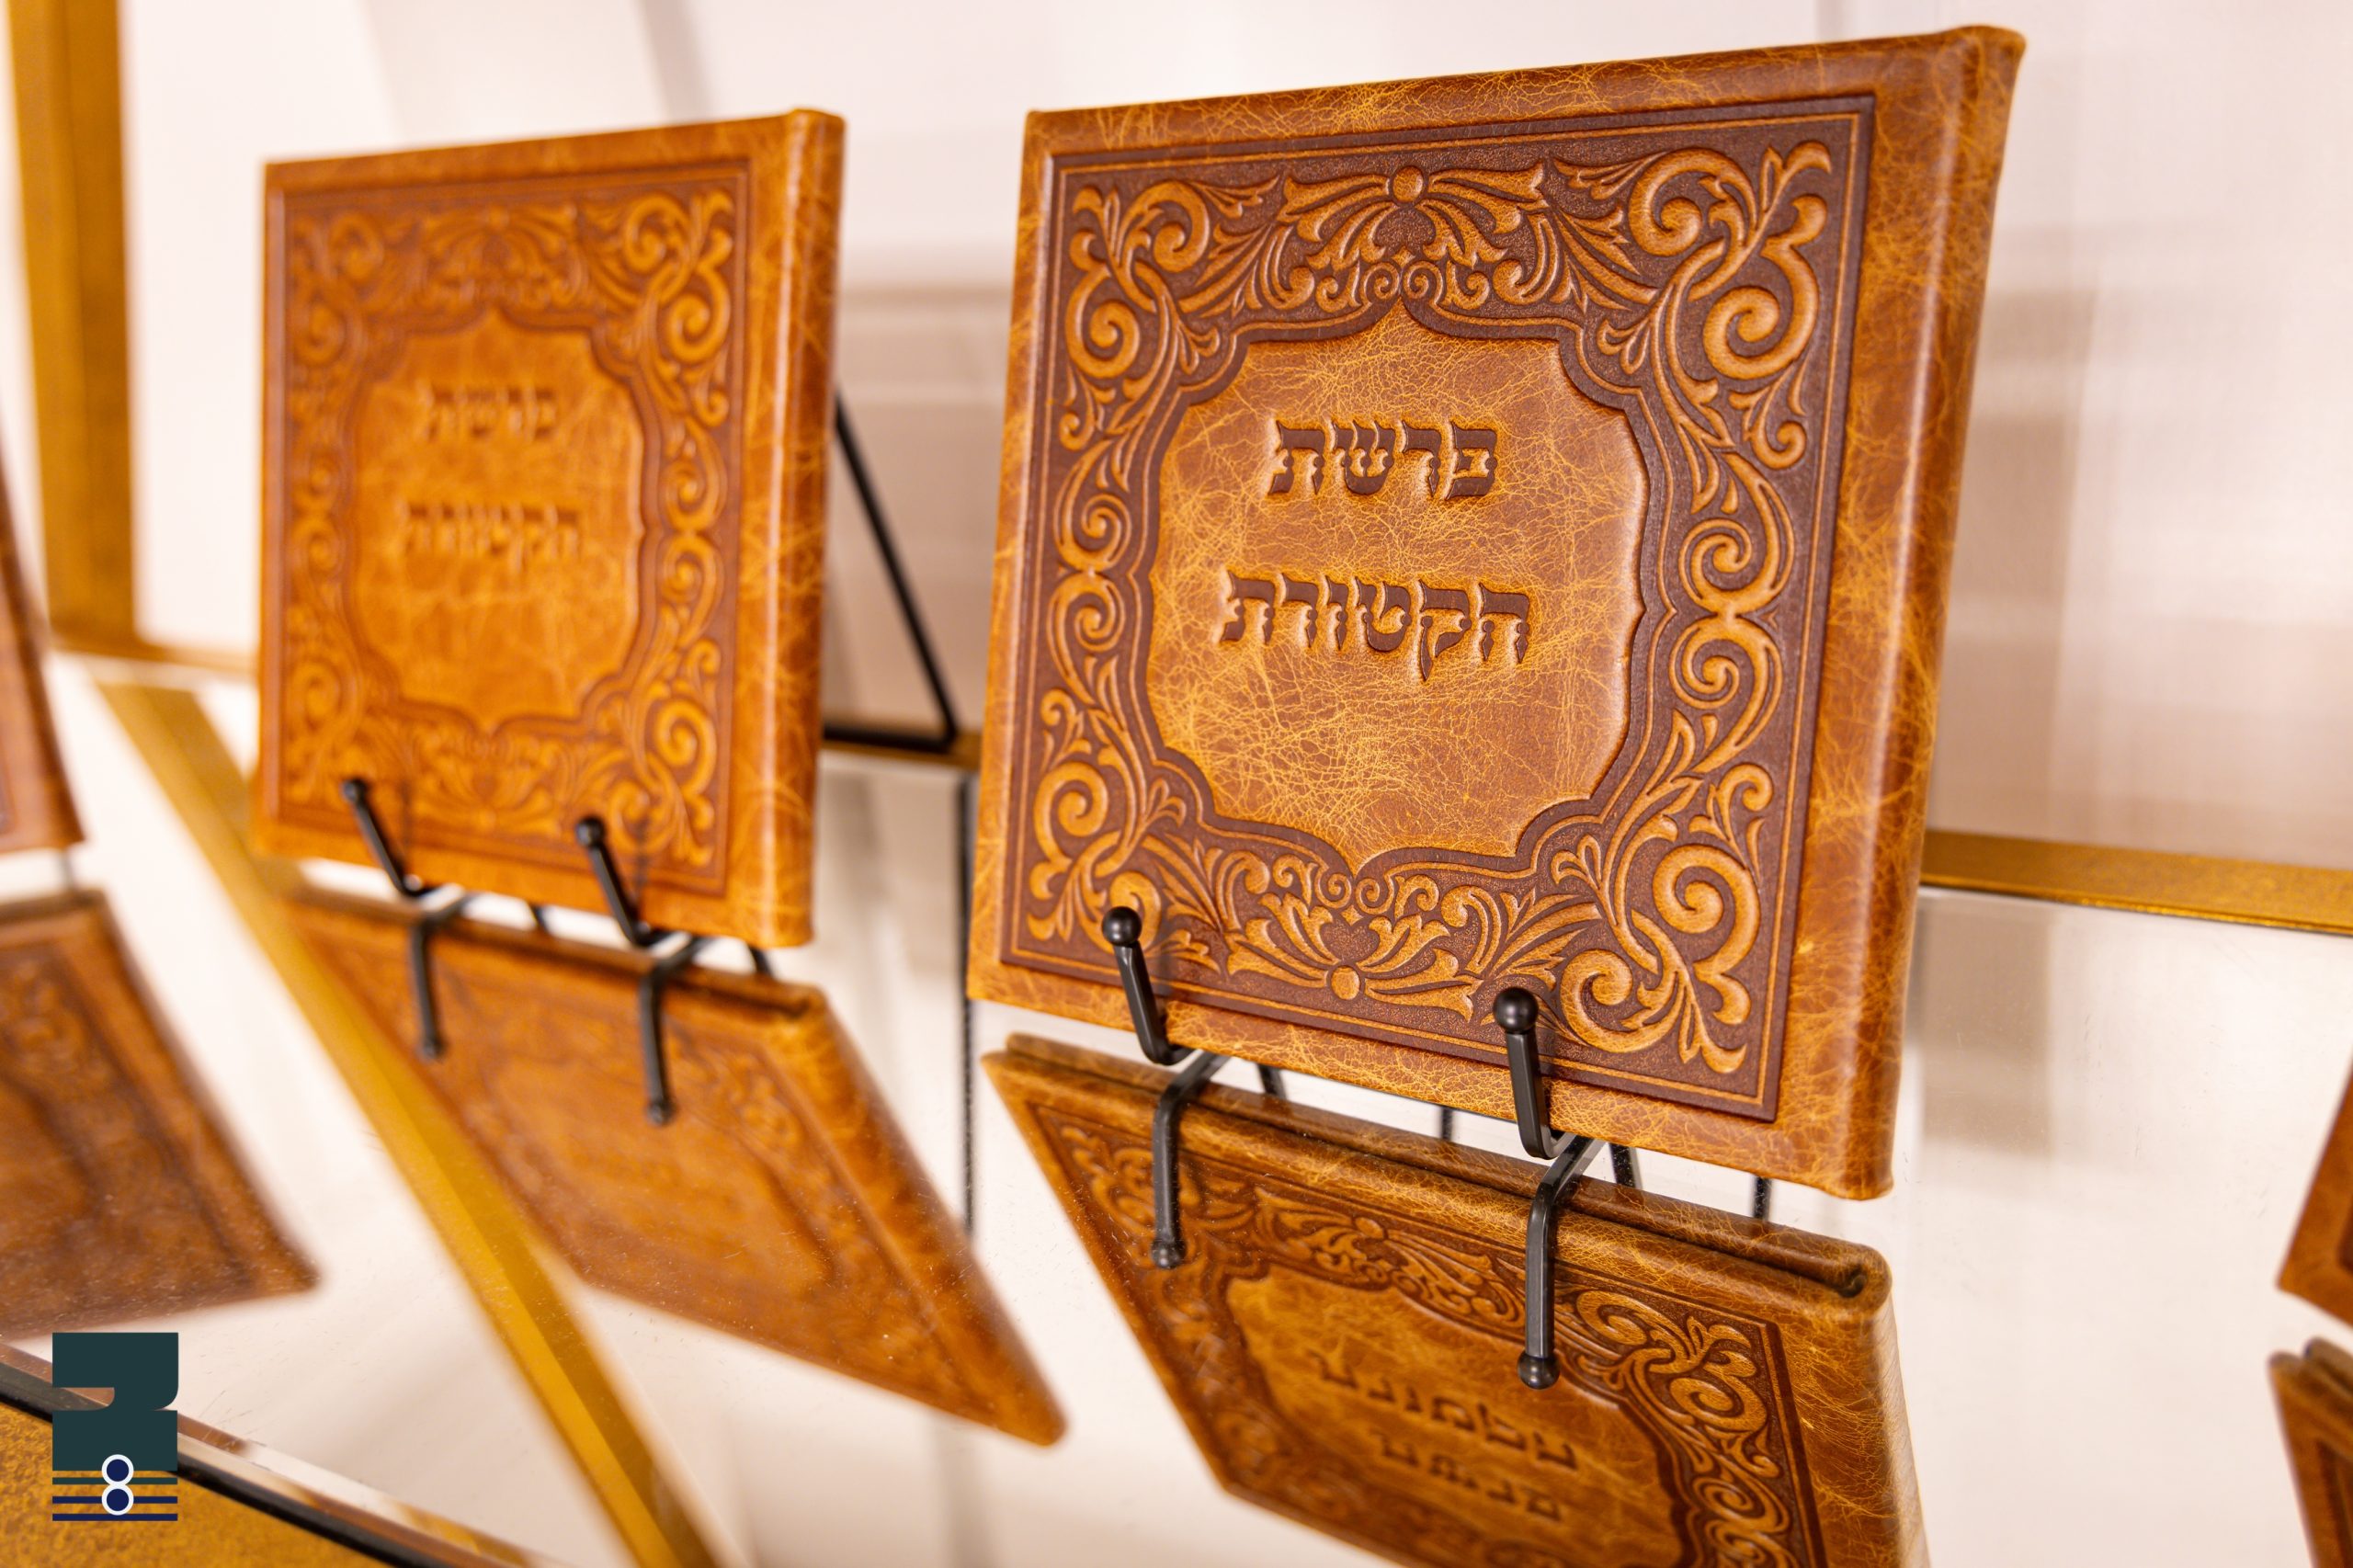 פרשת
הקטורת
פרשת
הקטורת
8